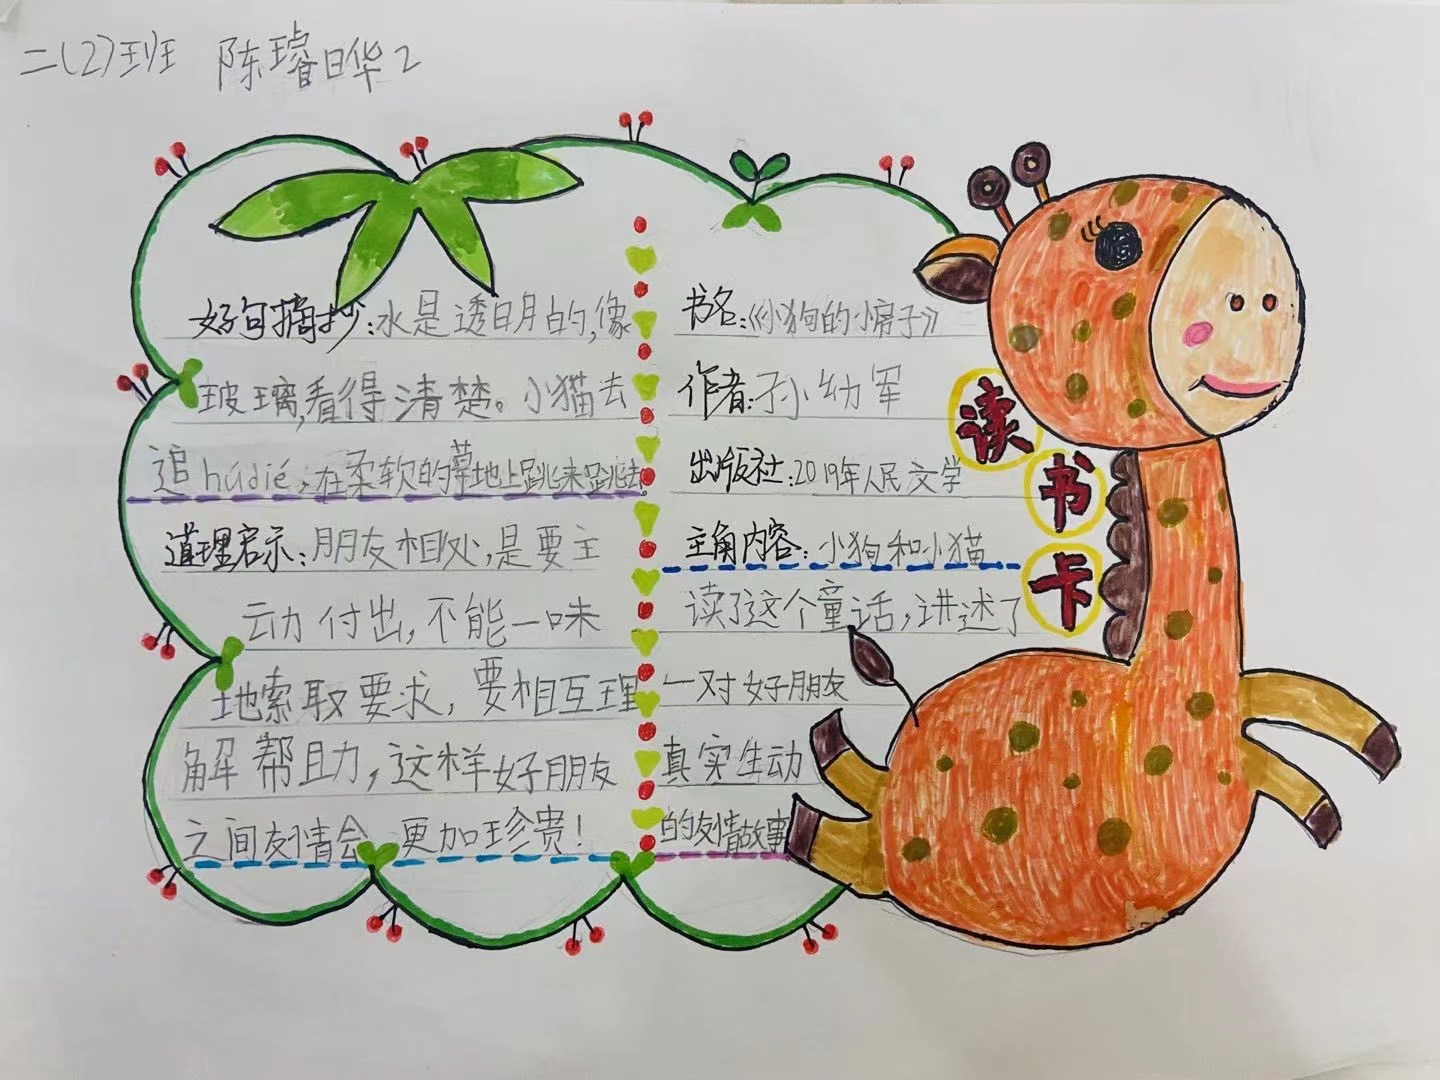 二(2)班 陈璿晔2
好句摘抄:水是透明的,像
玻璃,看得清楚。小猫去
追húdié,在柔软的草地上跳来跳去。
道理启示:朋友相处,是要主
动付出,不能一味
地索取要求,要相互理
解帮助,这样好朋友
之间友情会更加珍贵!
书名:《小狗的小房子》
作者:孙幼军
出版社:2019年人民文学
主角内容:小狗和小猫
读了这个童话,讲述了
一对好朋友
真实生动
的友情故事
读
书
卡